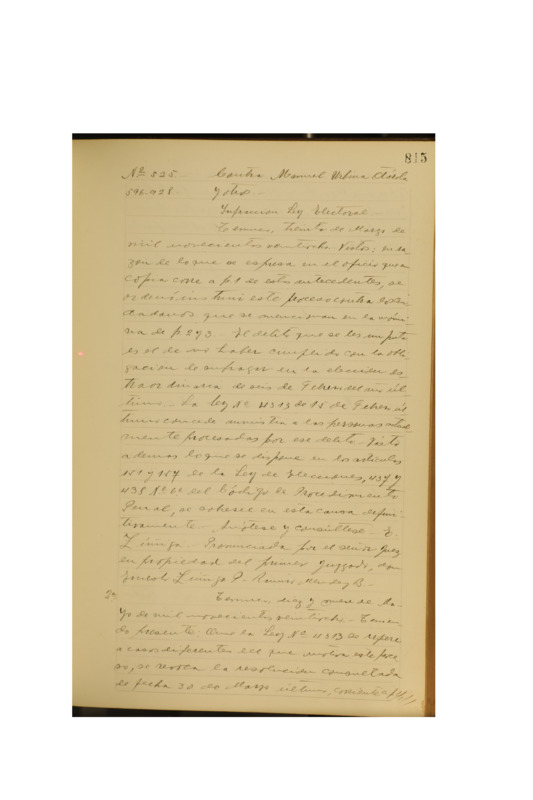 815
Nº 535 Contra Manuel Urbina
596.928 y otros
Infracción Ley Electoral.-
Temuco, treinta de Marzo de
mil novecientos veintiocho. Vistos: en ra-
zón de lo que se expresa en el oficio que en
copia corre a f 1 de estos antecedentes, se
ordenó instruir este proceso contra los ciu-
dadanos que se mencionan en la nómi-
na de f 293.- El delito que se les imputa
es el de no haber cumplido con la obli-
gación de sufragar en la elección es-
traordinaria de seis de Febrero del año úl-
timo.- La ley Nº 4313 de 15 de Febrero úl-
timo concede amnistía a las personas actual-
mente procesadas por ese delito.- Visto
ademas lo que se dispone en los artículos
151 y 157 de la Ley de Elecciones, 437 y
438 Nº 6º del Código de Procedimiento
Penal, se sobresee en esta causa defini-
tivamente.- Anótese y consúltese.- E.
Zúñiga.- Pronunciada por el señor Juez
en propiedad del primer Juzgado, don
Ernesto Zúñiga P. Ramírez, Mendez B.-
2ª Temuco, diez y nueve de Ma-
yo de mil novecientos veintiocho.- Tenien-
do presente: Que la Ley Nº 4313 se refiere
a casos diferentes del que motiva este proce-
so, se revoca la resolución consultada
de fecha 30 de Marzo último, corriente a f